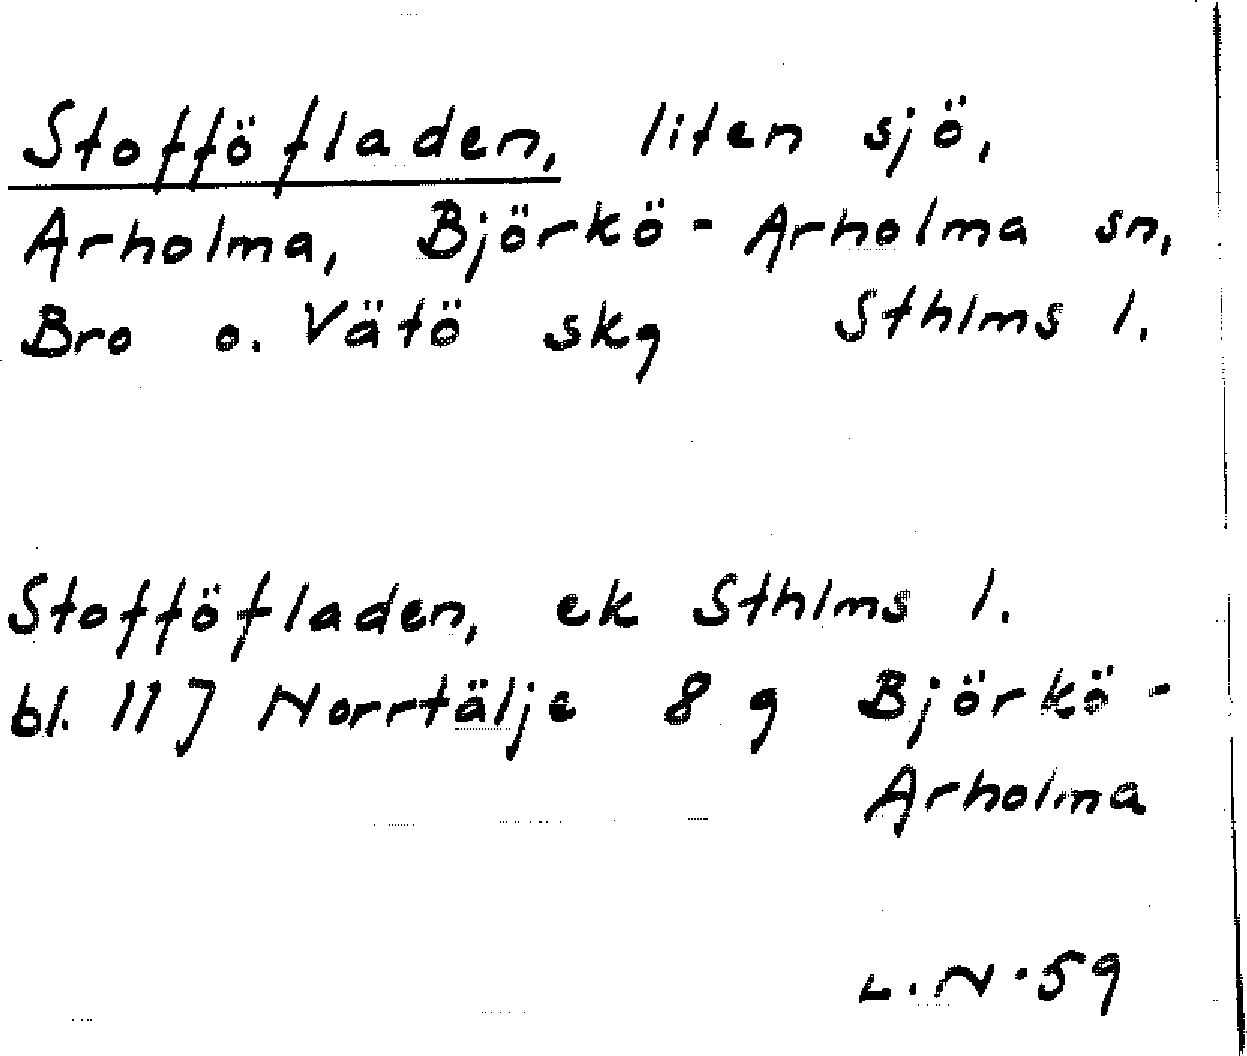 Stofföfladen, liten sjö,
Arholma, Björkö-Arholma sn,
Bro o. Vätö skg Sthlms l.
Stofföfladen, ek Sthlms l.
bl. 117 Norrtälje 8 g Björkö-
Arholma
L.N.59